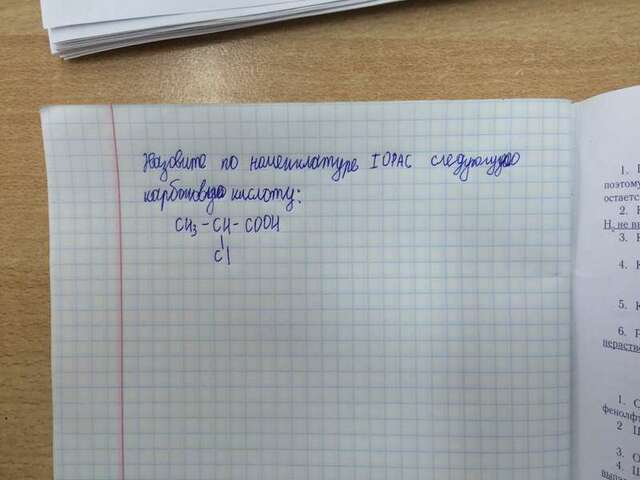 Назовите по номенклатуре IOPAC следующую
карбоновую кислоту:
CH₃ - CH - COOH
|
Cl
1.
поэтому
остаетс
2.
Н₂ не вы
3.
4.
5.
6.
нераств
1.
фенолф
2
3.
4.
выпа